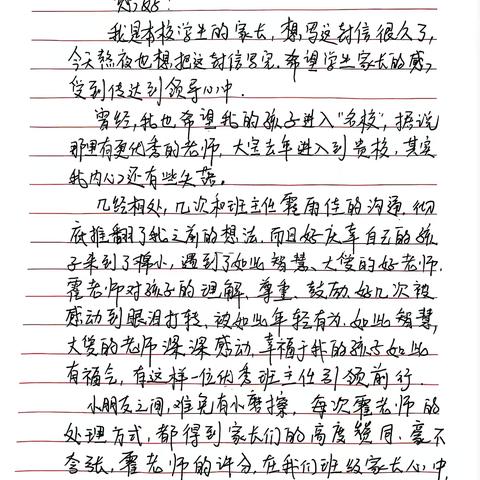 您好：
我是本校学生的家长，想写这封信很久了，
今天熬夜也想把这封信写完，希望学生家长的感
受到传达到领导心中．
曾经，我也希望我的孩子进入“名校”，据说
那里有更优秀的老师，大宝去年进入到贵校，其实
我内心还有些失落。
几经相处，几次和班主任霍雨佳的沟通，彻
底推翻了我之前的想法，而且好庆幸自己的孩
子来到了小，遇到了如此智慧、大爱的好老师．
霍老师对孩子的理解、尊重、鼓励，好几次被
感动到眼泪打转，被如此年轻有为、如此智慧，
大爱的老师深深感动，幸福于我的孩子如此
有福气，有这样一位优秀班主任引领前行．
小朋友之间，难免有小磨擦，每次霍老师的
处理方式，都得到家长们的高度赞同，毫不
夸张，霍老师的评分，在我们班级家长心中，